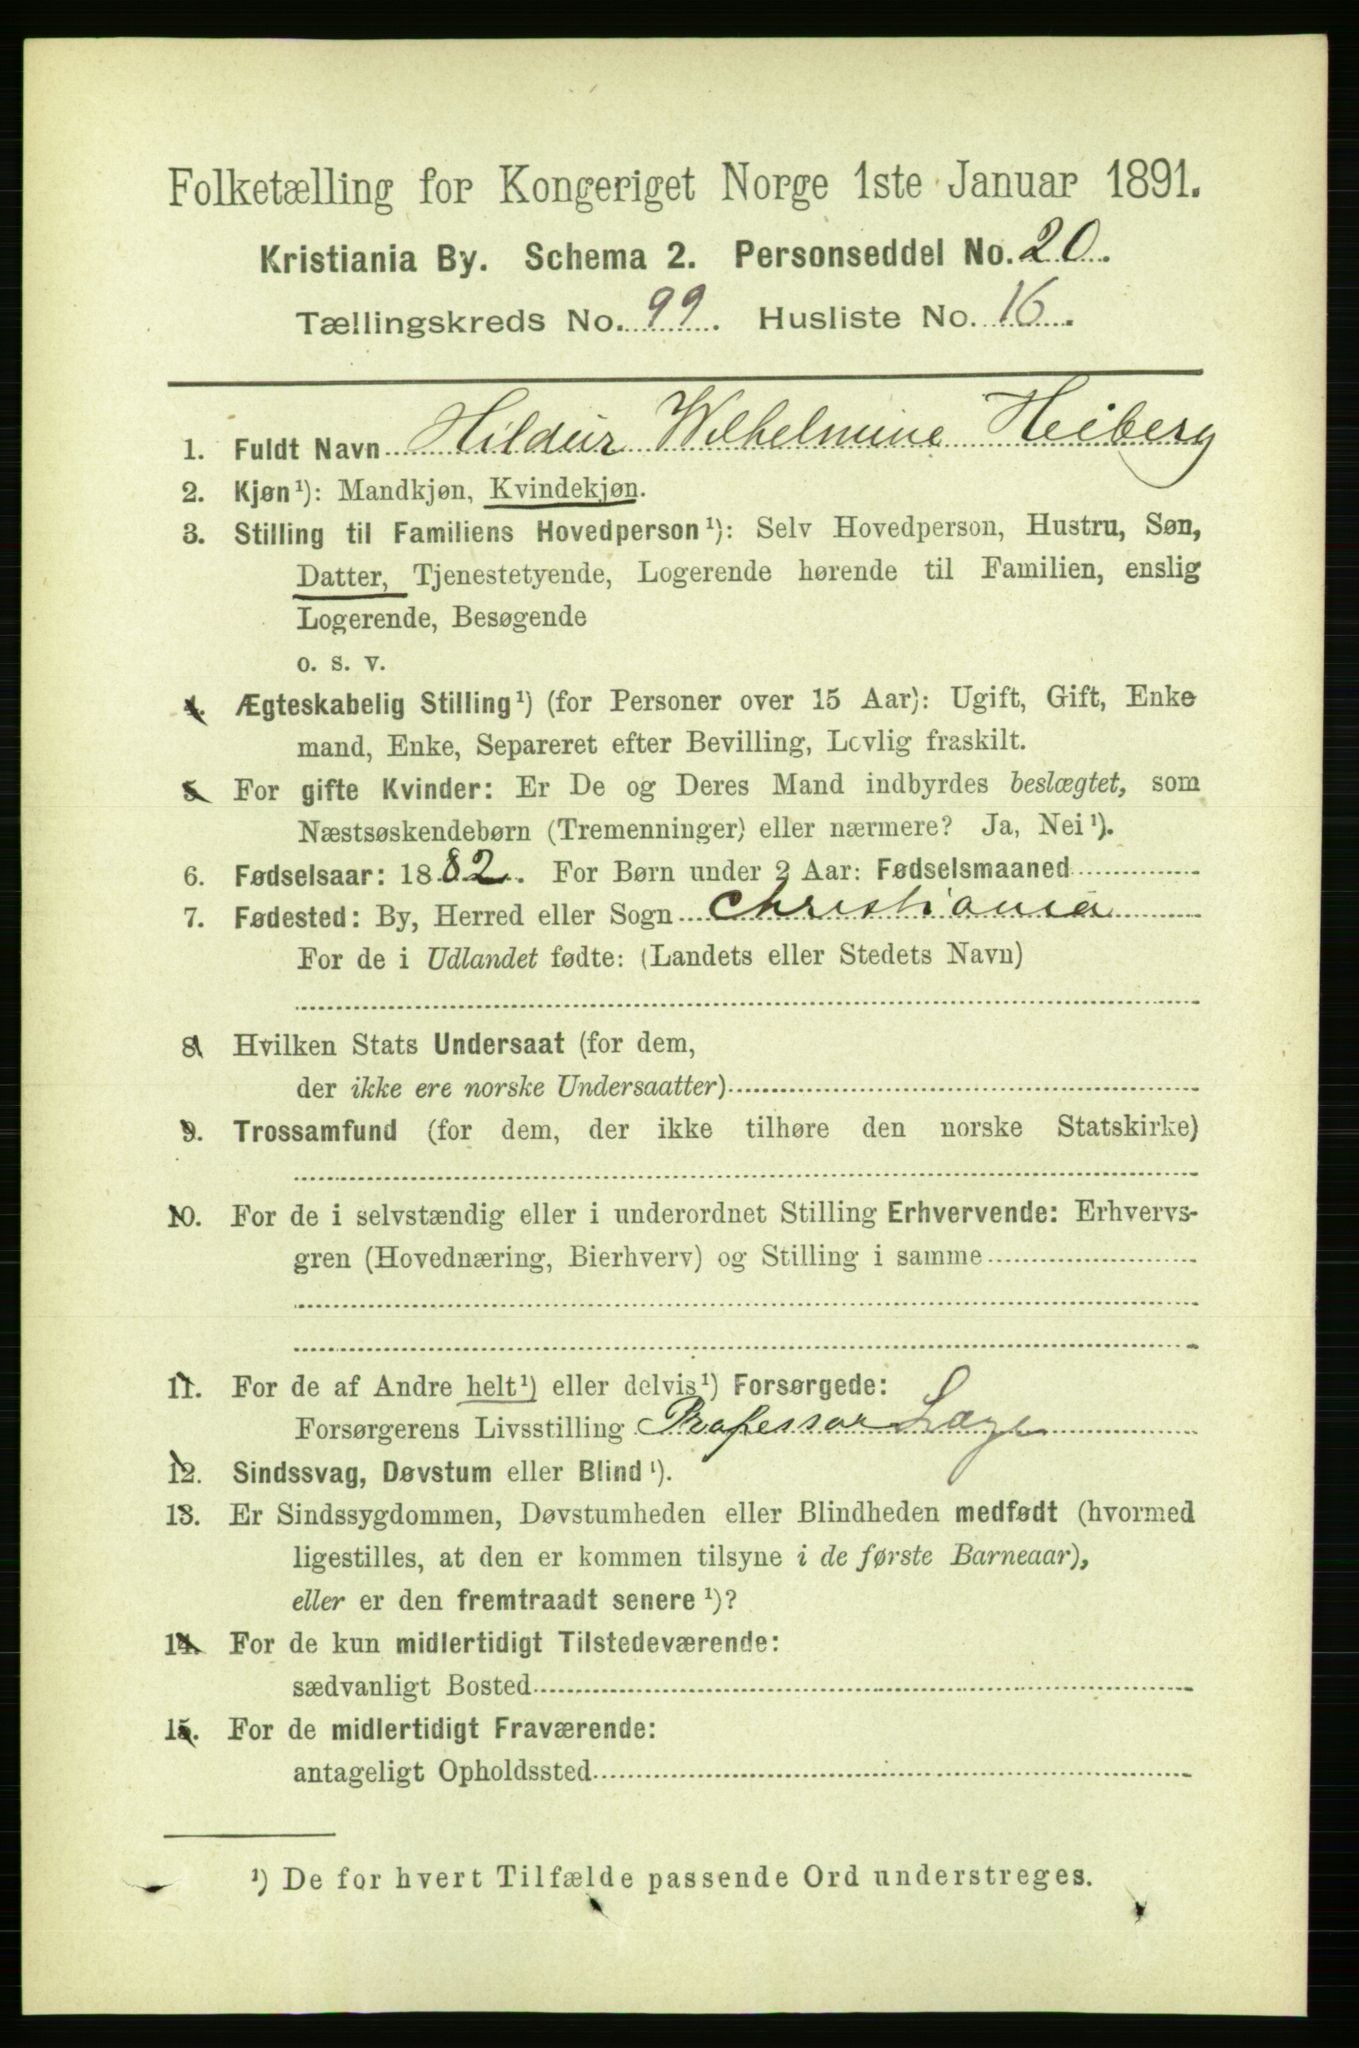 Folketælling for Kongeriget Norge 1ste Januar 1891.
Kristiania By. Schema 2. Personseddel No. 20.
Tællingskreds No. 99. Husliste No. 16.
1. Fuldt Navn Hildur Wilhelmine Heiberg
2. Kjøn¹): Mandkjøn, Kvindekjøn.
3. Stilling til Familiens Hovedperson¹): Selv Hovedperson, Hustru, Søn,
Datter, Tjenestetyende, Logerende hørende til Familien, enslig
Logerende, Besøgende
o. s. v.
4. Ægteskabelig Stilling¹) (for Personer over 15 Aar): Ugift, Gift, Enke
mand, Enke, Separeret efter Bevilling, Lovlig fraskilt.
5. For gifte Kvinder: Er De og Deres Mand indbyrdes beslægtet, som
Næstsøskendebørn (Tremenninger) eller nærmere? Ja, Nei¹).
6. Fødselsaar: 1882. For Børn under 2 Aar: Fødselsmaaned
7. Fødested: By, Herred eller Sogn Christiania
For de i Udlandet fødte: (Landets eller Stedets Navn)
8. Hvilken Stats Undersaat (for dem,
der ikke ere norske Undersaatter)
9. Trossamfund (for dem, der ikke tilhøre den norske Statskirke)
10. For de i selvstændig eller i underordnet Stilling Erhvervende: Erhvervs-
gren (Hovednæring, Bierhverv) og Stilling i samme
11. For de af Andre helt¹) eller delvis¹) Forsørgede:
Forsørgerens Livsstilling Professor Læge
12. Sindssvag, Døvstum eller Blind¹).
13. Er Sindssygdommen, Døvstumheden eller Blindheden medfødt (hvormed
ligestilles, at den er kommen tilsyne i de første Barneaar),
eller er den fremtraadt senere¹)?
14. For de kun midlertidigt Tilstedeværende:
sædvanligt Bosted
15. For de midlertidigt Fraværende:
antageligt Opholdssted
¹) De for hvert Tilfælde passende Ord understreges.